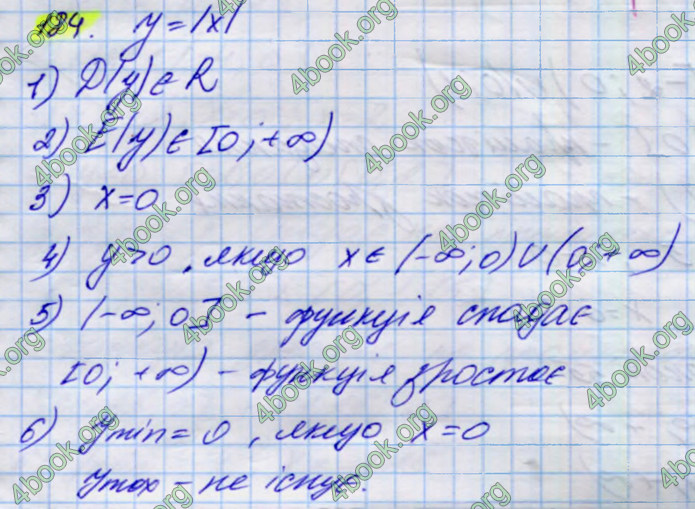 184. y=|x|
1) D(y)∈R
2) E(y)∈[0;+∞)
3) x=0
4) y>0, якщо x∈(-∞;0)∪(0;+∞)
5) (-∞;0] - функція спадає
[0;+∞) - функція зростає
6) ymin=0, якщо x=0
ymax - не існує.